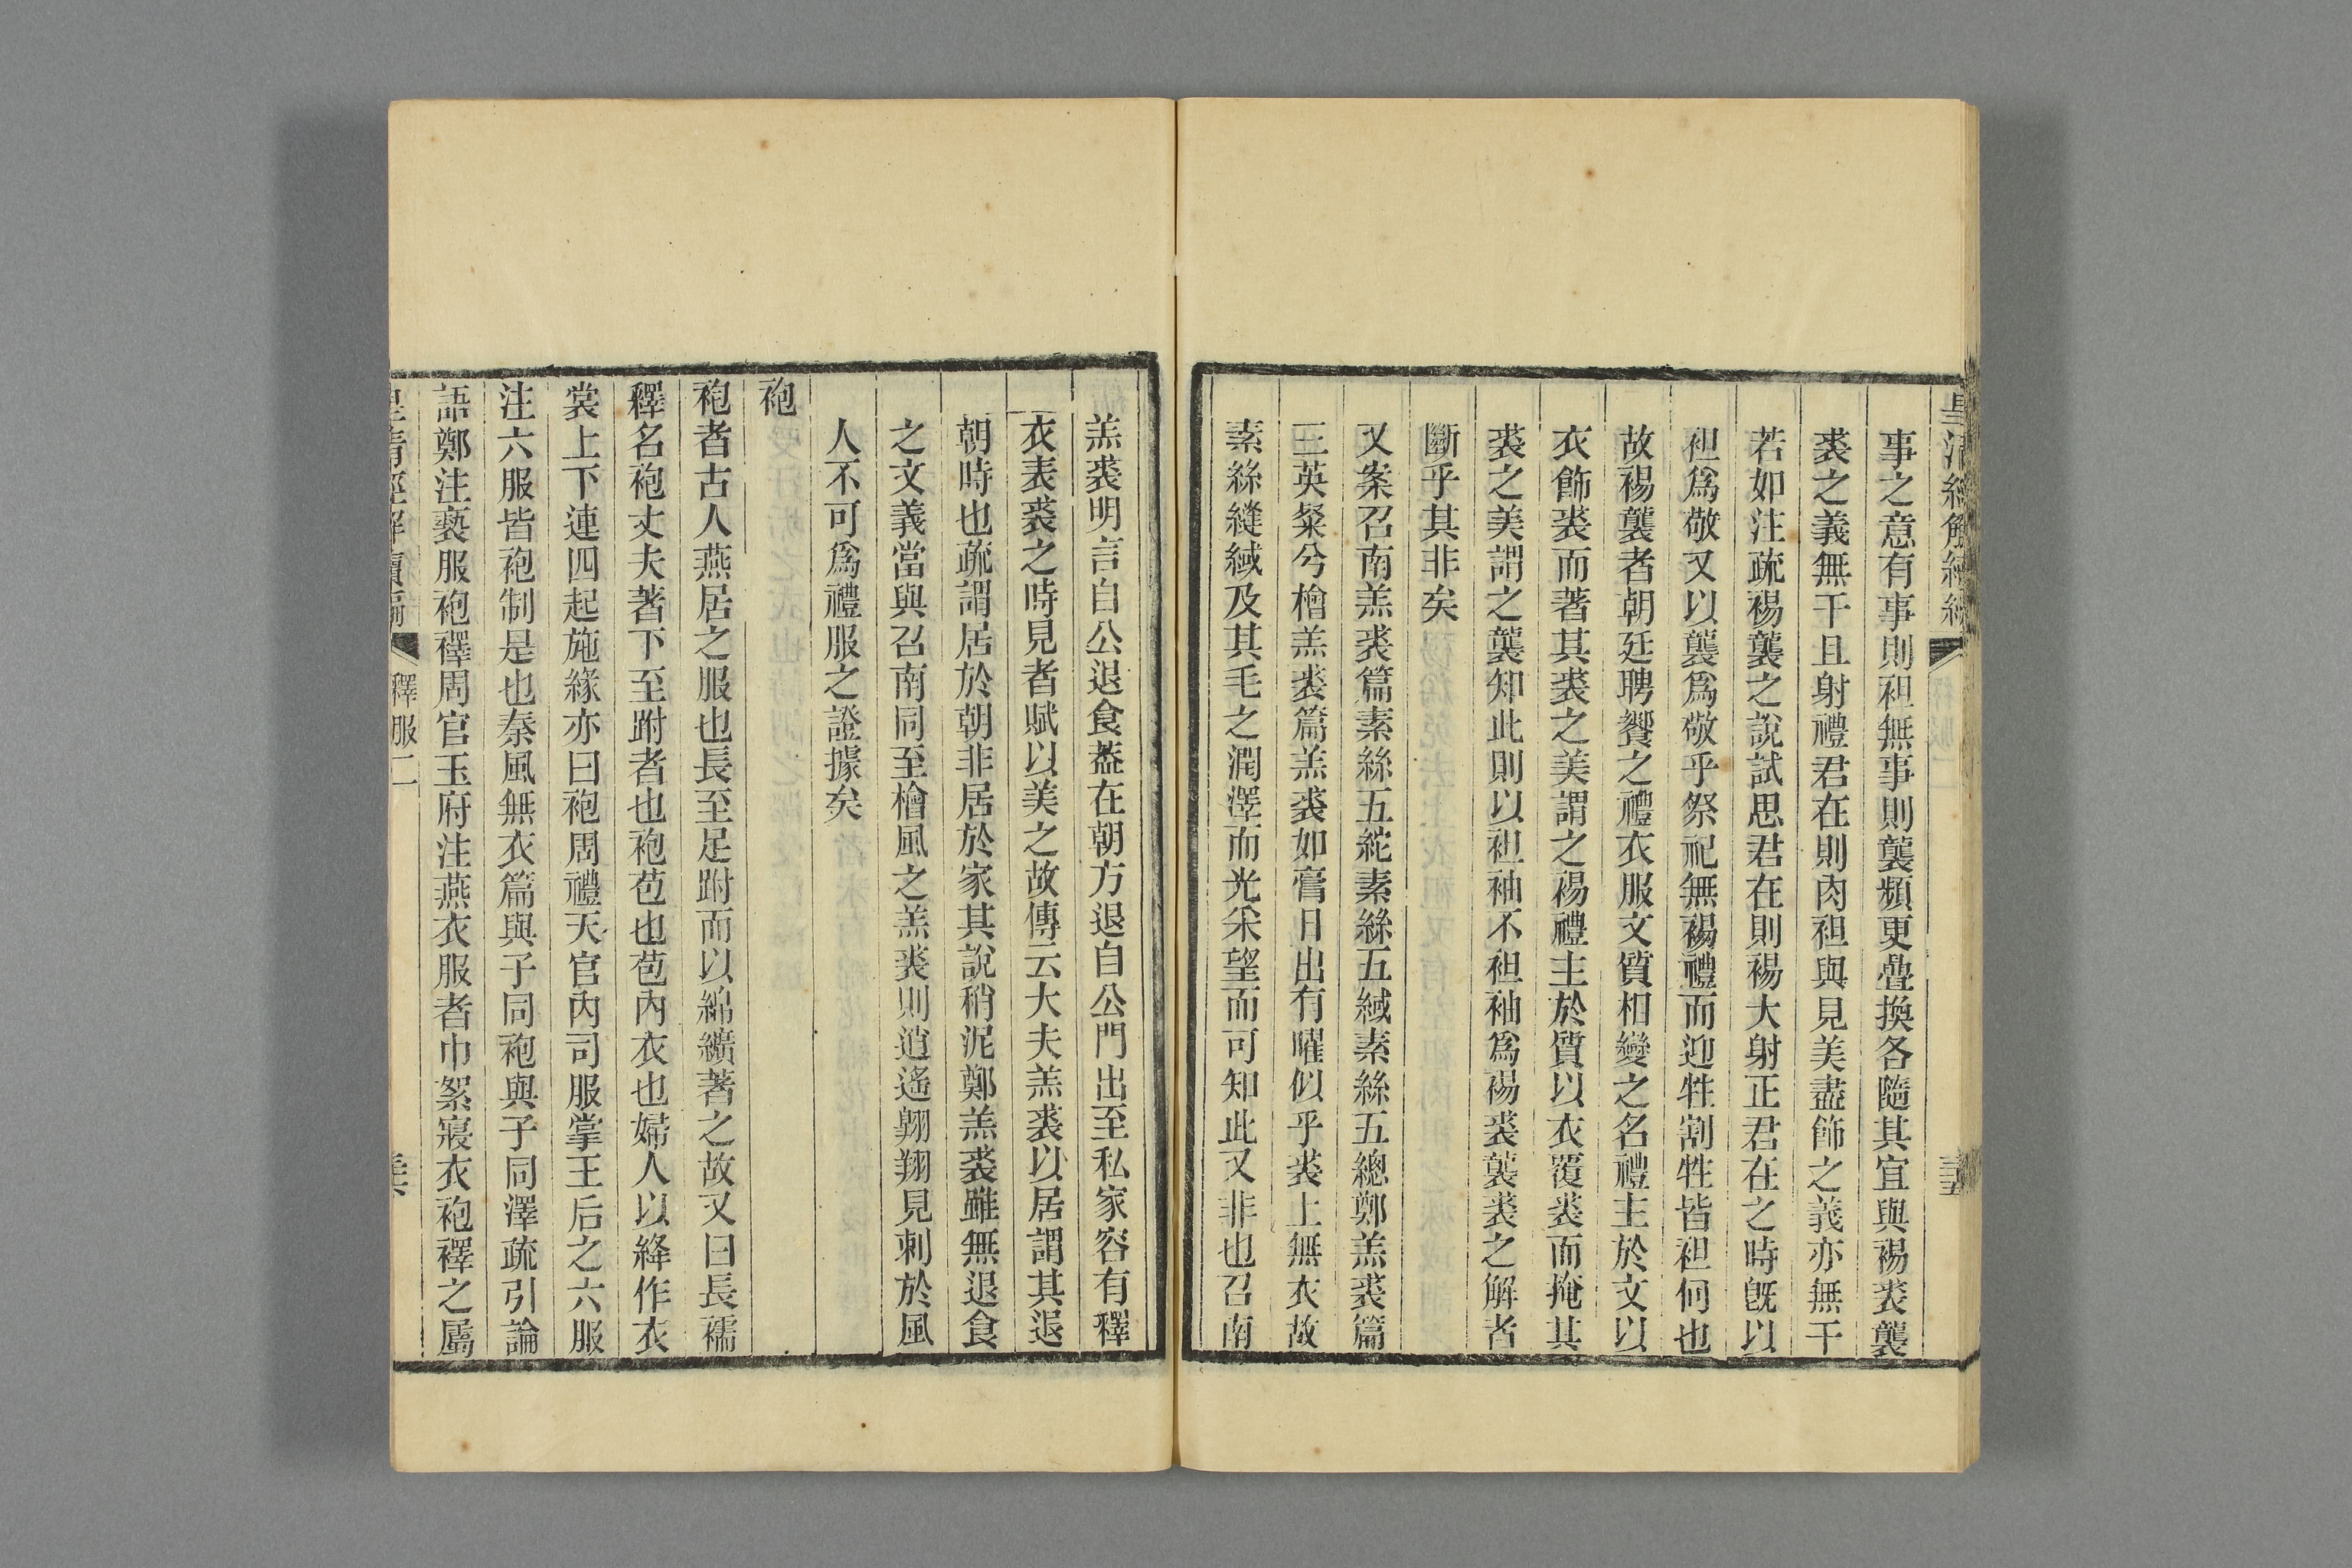 事之意有事則袒無事則襲頻更疊換各隨其宜與裼裘襲
裘之義無干且射禮君在則肉袒與見美盡飾之義亦無干
若如注疏裼襲之說試思君在則裼大射正君在之時旣以
袒爲敬又以襲爲敬乎祭祀無裼禮而迎牲割牲皆袒何也
故裼襲者朝廷聘饗之禮衣服文質相變之名禮主於文以
衣飾裘而著其裘之美謂之裼禮主於質以衣覆裘而掩其
裘之美謂之襲知此則以袒袖不袒袖爲裼裘襲裘之解者
斷乎其非矣
又案召南羔裘篇素絲五紽素絲五緎素絲五總鄭羔裘篇
三英粲兮檜羔裘篇羔裘如膏日出有曜似乎裘上無衣故
素絲縫緎及其毛之潤澤而光采望而可知此又非也召南
羔裘明言自公退食葢在朝方退自公門出至私家容有釋
衣表裘之時見者賦以美之故傳云大夫羔裘以居謂其退
朝時也疏謂居於朝非居於家其說稍泥鄭羔裘雖無退食
之文義當與召南同至檜風之羔裘則逍遙翺翔見刺於風
人不可爲禮服之證據矣
袍
袍者古人燕居之服也長至足跗而以綿纊著之故又曰長襦
釋名袍丈夫著下至跗者也袍苞也苞內衣也婦人以絳作衣
裳上下連四起施緣亦曰袍周禮天官內司服掌王后之六服
注六服皆袍制是也秦風無衣篇與子同袍與子同澤疏引論
語鄭注褻服袍襗周官玉府注燕衣服者巾絮寢衣袍襗之屬
皇清經解續編
釋服二